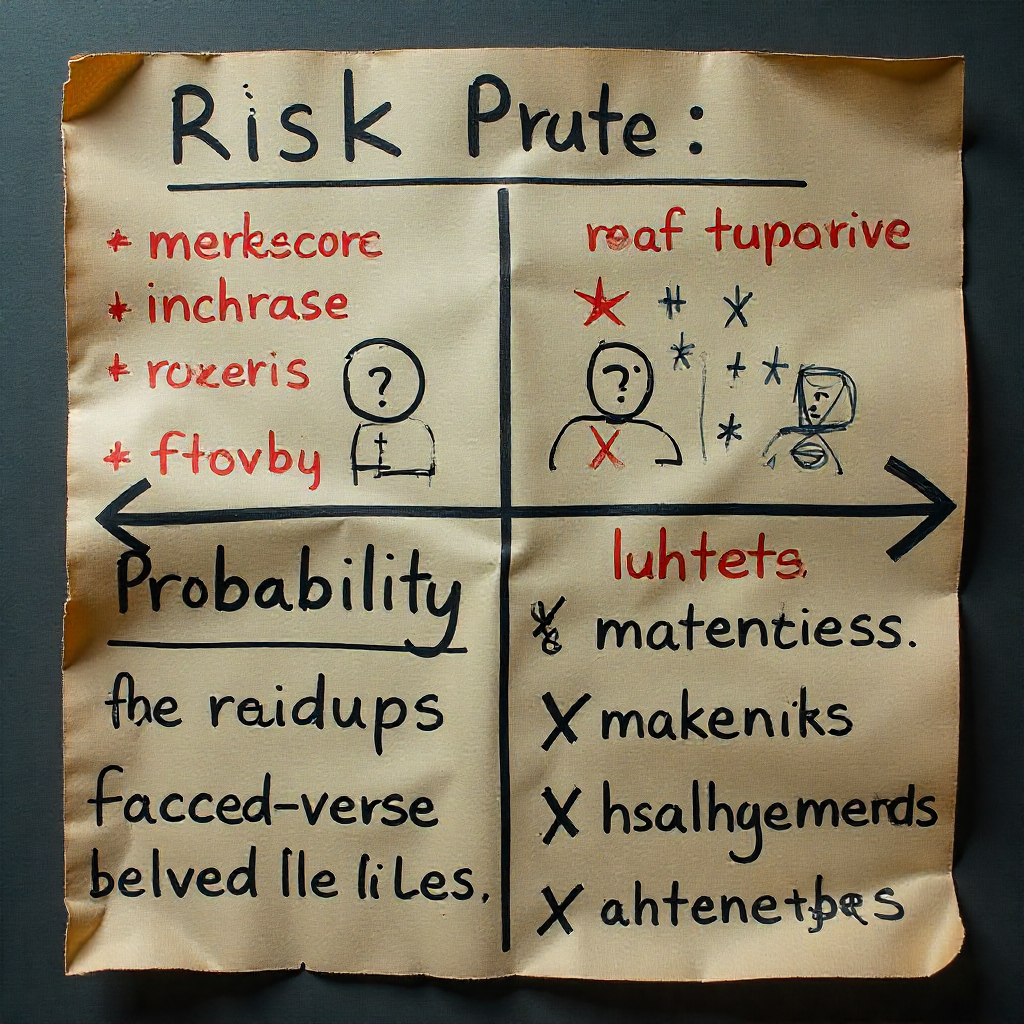 Risk Prute:
* merkscore
* inchrase
* rozeris
* ftovby
?
roaf tuporive
?
X
Probability
fhe raidups
facced-verse
belved lle liLes.
luhtets
matentiess.
X makeniks
X hsalhgemends
X